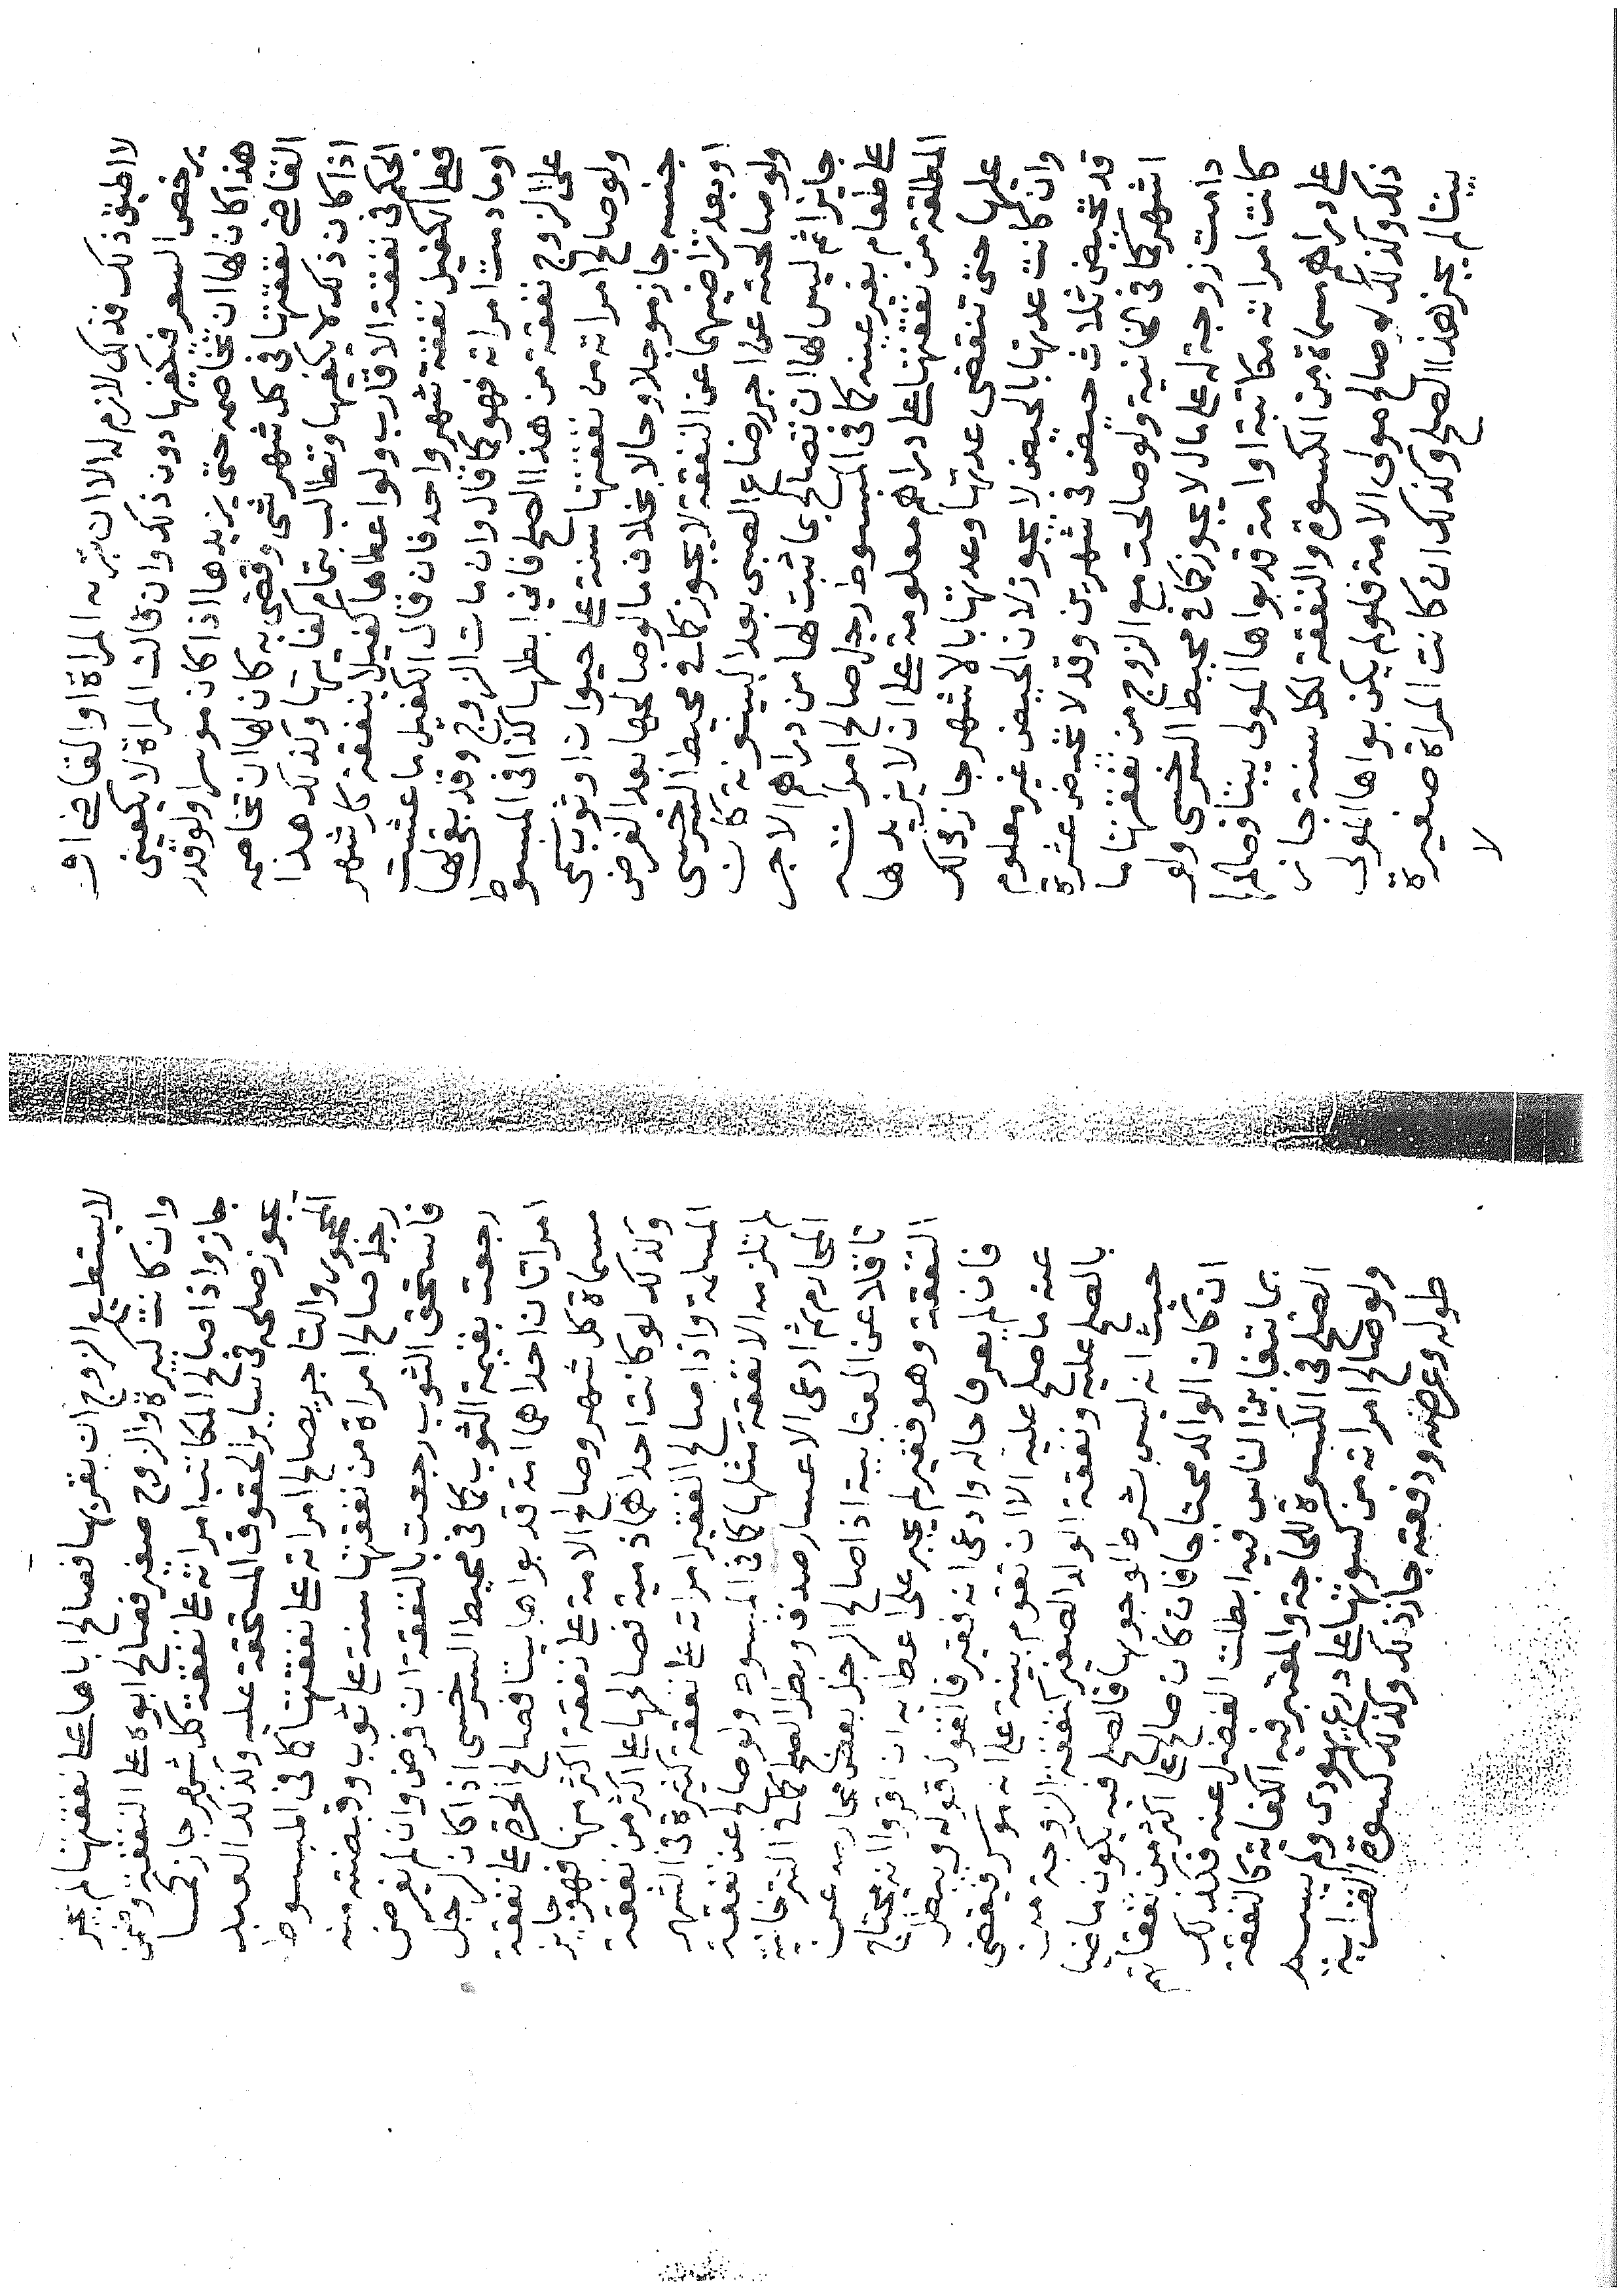 لا اطيق ذلك فذلك لازم له الا ان تبريه المراة او القاضى او
يرخص السعر فيكفيها دون ذلك وان قالت المراة لا يكفينى
هذا كان لها ان تخاصمه حتى يزيدها اذا كان موسرا ولو قدر
القاضى نفقتها فى كل شهر شى وقضى به كان لها ان تخاصمه
اذا كان ذلك لا يكفيها وتطالب بتمام كفايتها وكذلك هذا
الحكم فى نفقة الاقارب ولو اعطاها كفيلا بنفقة كل شهر
فعلى الكفيل نفقة شهر واحد فان قال الكفيل ما عشت
او ما دمت امراته فهو كما قال وان مات الزوج وقد بقى لها
على الزوج نفقة من هذا الصلح فانى ابطلها كذا فى المبسوط
ولو صالح امراته من نفقتها سنة على حيوان او ثوب سمى
جنسه جاز موجلا وحالا بخلاف ما لو صالحها بعد الفرض
او بعد تراضيهما عن النفقة لا يجوز كما فى محيط السرخسى
ولو صالحته على اجر رضاع الصبى بعد البينونة كان
جايزا ثم ليس لها ان تصالح بما ثبت لها من دراهم الاجر
على طعام بغير عينه كما فى المبسوط رجل صالح امراته
المطلقة من نفقتها على دراهم معلومة على ان لا يزيدها
عليها حتى تنقضى عدتها وعدتها بالاشهر جاز ذلك
وان كانت عدتها بالحيض لا يجوز لان الحيض غير معلوم
قد تحيض ثلاث حيض فى شهرين وقد لا تحيض عشرة
اشهر كما فى الخانية ولو صالحت مع الزوج من نفقتها ما
دامت زوجة له على مال لا يجوز كما فى محيط السرخسى ولو
كانت امراته مكاتبة او امة قد بواها المولى بيتا وصالحها
على دراهم مسماة من الكسوة والنفقة لكل سنة جاز
ذلك وكذلك لو صالح مولى الامة فلو لم يكن بواها المولى
بيتا لم يجز هذا الصلح وكذلك ان كانت المراة صغيرة
لا
لا يستطيع الزوج ان يقربها فصالح اباها على نفقتها لم يجز
وان كانت كبيرة والزوج صغير فصالح ابوه على النفقة وضمن
جاز واذا صالح المكاتب امراته على نفقة كل شهر جاز كما
يجوز صلحه فى ساير الحقوق المستحقة عليه وكذلك العبد
المحجور والتاجر يصالح امراته على نفقتها كما فى المبسوط
رجل صالح امراة من نفقتها سنة على ثوب وقبضته منه
فاستحق الثوب رجعت بالنفقة ان فرض وان لم يفرض
رجعت بقيمة الثوب كما فى محيط السرخسى اذا كان لرجل
امراتان احداهما امة قد بواها بيتا فصالح الحرة على نفقة
مسماة كل شهر وصالح الامة على نفقة اكثر منها فهو جايز
وكذلك لو كانت احداهما ذمية فصالحها على اكثر من نفقة
المسلمة واذا صالح الفقير امراته على نفقة كثيرة فى الشهر
لم تلزمه الا نفقة مثلها كما فى المبسوط ولو صالح عن نفقة
المحارم ثم ادعى الاعسار صدق وبطل الصلح كما فى التترخانية
ناقلا عن العتابية اذا صالح الرجل بعض محارمه عن
النفقة وهو فقير لم يجبر على اعطايه ان اقروا انه محتاج
فان لم يعرف حاله وادعى انه فقير فالقول قوله ويبطل
عنه ما صالح عليه الا ان تقوم بينة على انه موسر فيقضى
بالصلح عليه ونفقة الولد الصغير كنفقة الزوجة من
حيث انه ليس شرط لوجوبها فالصلح فيه يكون ماضيا
ان كان الوالد محتاجا فان كان صالح على اكثر من نفقاتهم
بما يتغابن الناس فيه ابطلت الفضل عنه فكذلك
الصلح فى الكسوة للحاجة والمعتبر فيه الكفاية كالنفقة
ولو صالح امراته من كسوتها على درع يهودى ولم يسم
طوله وعرضه ودفعته جاز ذلك وكذلك كسوة القرابة